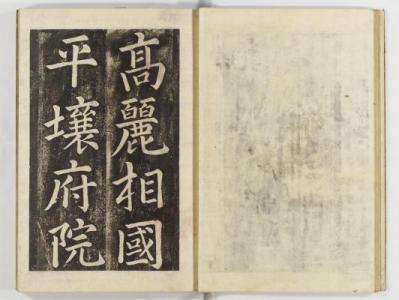 高麗相國
平壤府院